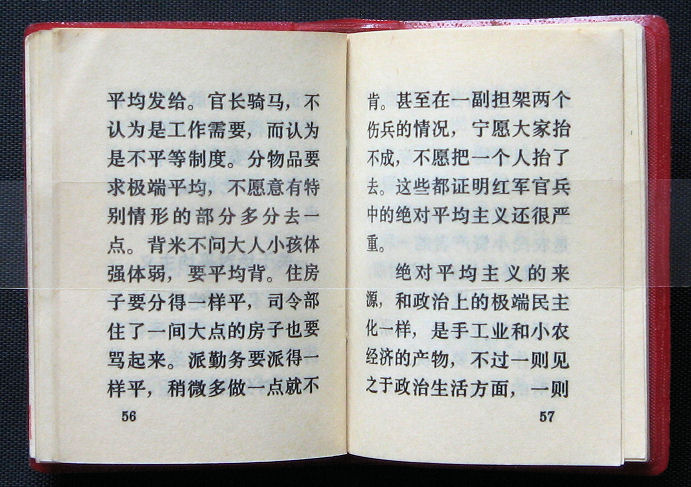 平均发给。官长骑马，不
认为是工作需要，而认为
是不平等制度。分物品要
求极端平均，不愿意有特
别情形的部分多分去一
点。背米不问大人小孩体
强体弱，要平均背。住房
子要分得一样平，司令部
住了一间大点的房子也要
骂起来。派勤务要派得一
样平，稍微多做一点就不
56
肯。甚至在一副担架两个
伤兵的情况，宁愿大家抬
不成，不愿把一个人抬了
去。这些都证明红军官兵
中的绝对平均主义还很严
重。
绝对平均主义的来
源，和政治上的极端民主
化一样，是手工业和小农
经济的产物，不过一则见
之于政治生活方面，一则
57